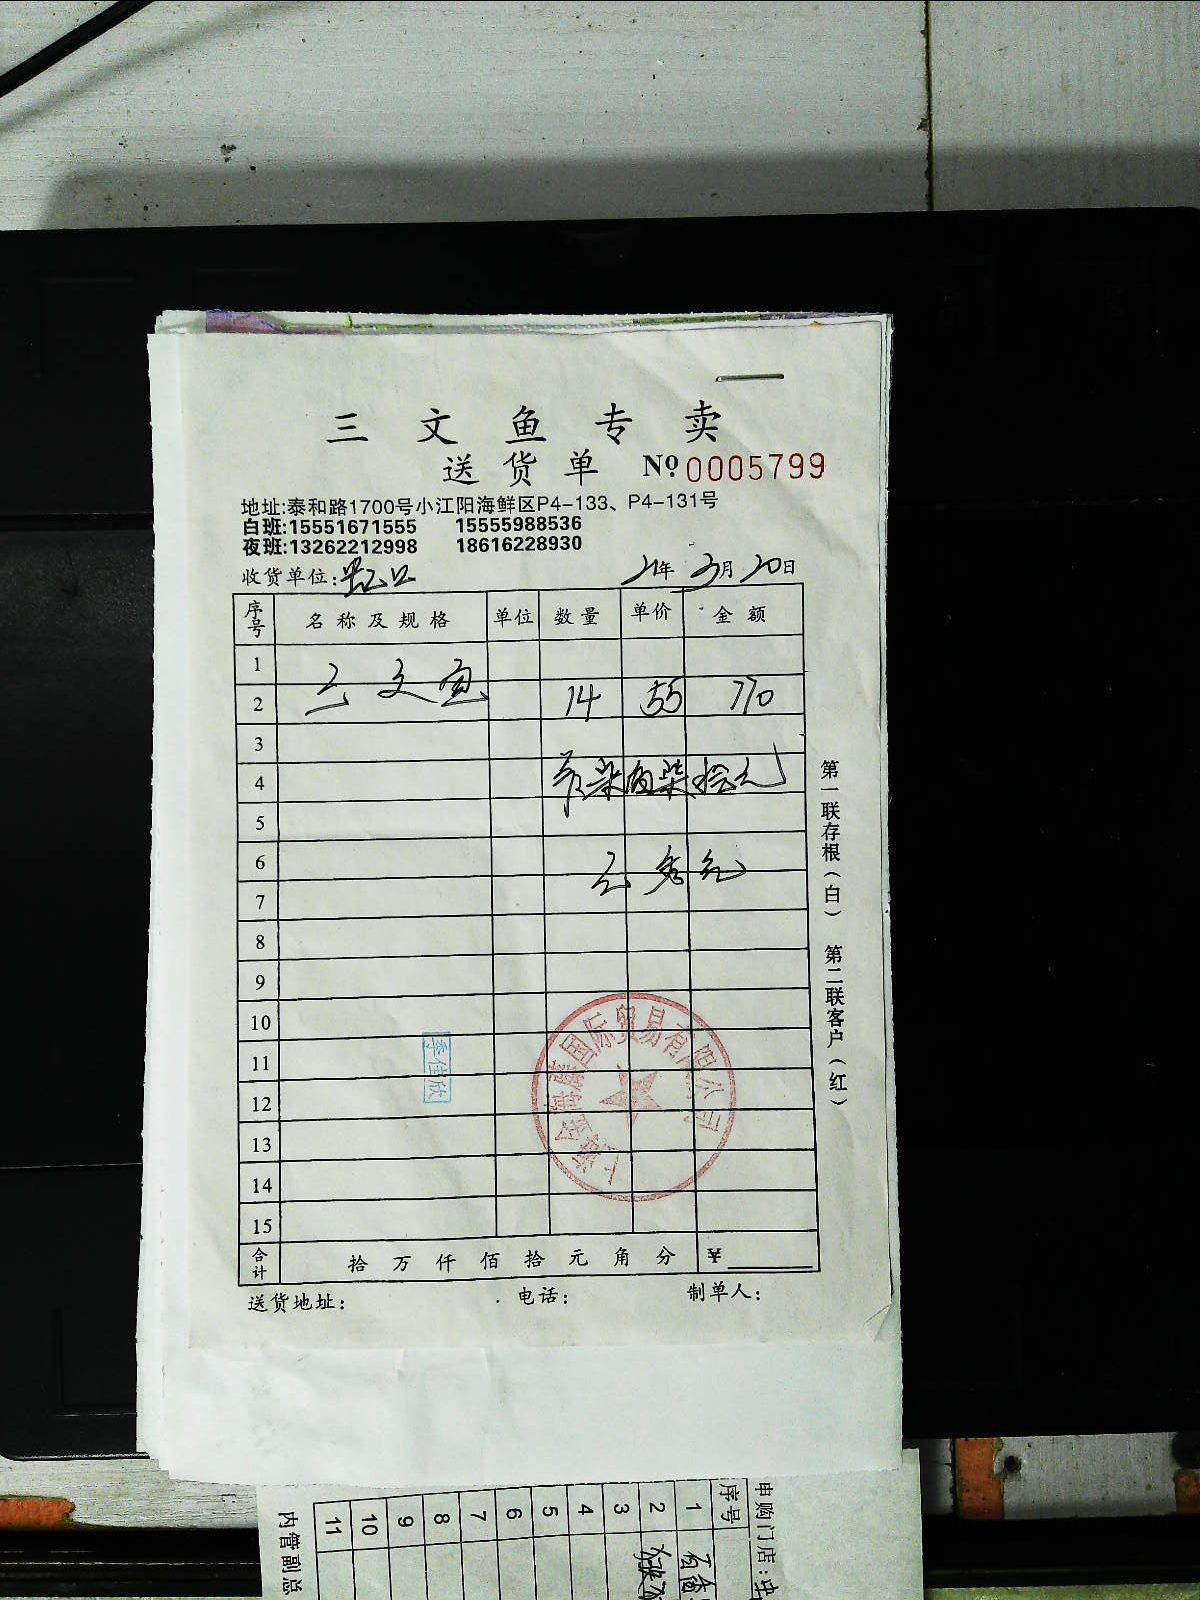 三文鱼专卖
送货单 № 0005799
地址:泰和路1700号小江阳海鲜区P4-133、P4-131号
白班:15551671555 15555988536
夜班:13262212998 18616228930
收货单位:虹口 21年3月20日
序号 名称及规格 单位 数量 单价 金额
1
2 三文鱼 14 55 770
3
4 柒佰柒拾元
5
6
7
8
9
10
11
12
13
14
15
合计 拾 万 仟 佰 拾 元 角 分 ¥
送货地址: 电话: 制单人:
第一联存根(白) 第二联客户(红)
李佳欣
国际贸易有限公司
申购门店:
序号 1 2 3 4 5 6 7 8 9 10 11
内管副总